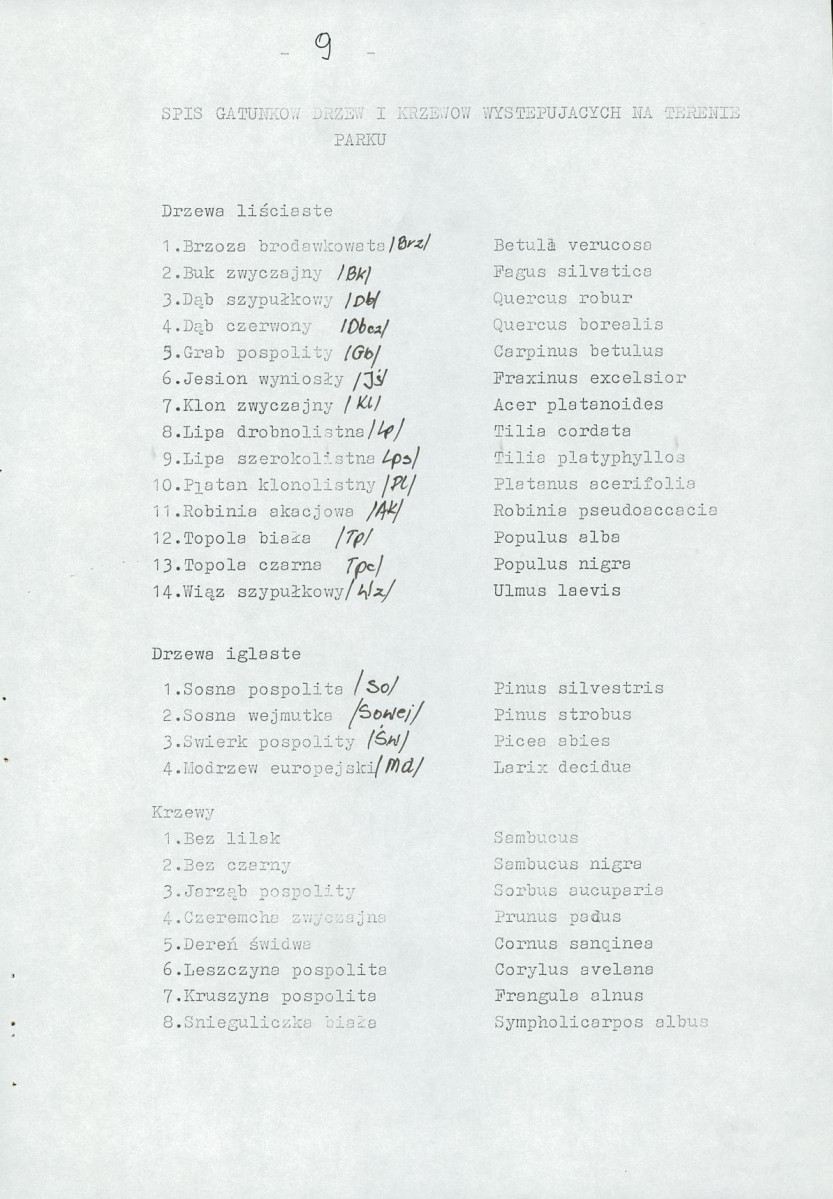 - 9 -
SPIS GATUNKOW DRZEW I KRZEWOW WYSTEPUJACYCH NA TERENIE
PARKU
Drzewa liściaste
1.Brzoza brodawkowata /Brz/ Betula verucosa
2.Buk zwyczajny /Bk/ Fagus silvatica
3.Dąb szypułkowy /Db/ Quercus robur
4.Dąb czerwony /Dbcz/ Quercus borealis
5.Grab pospolity /Gb/ Carpinus betulus
6.Jesion wyniosły /Jś/ Fraxinus excelsior
7.Klon zwyczajny /Kl/ Acer platanoides
8.Lipa drobnolistna /Lp/ Tilia cordata
9.Lipa szerokolistna Lps/ Tilia platyphyllos
10.Platan klonolistny /Pl/ Platanus acerifolia
11.Robinia akacjowa /Ak/ Robinia pseudoaccacia
12.Topola biała /Tp/ Populus alba
13.Topola czarna Tpc/ Populus nigra
14.Wiąz szypułkowy /Wz/ Ulmus laevis
Drzewa iglaste
1.Sosna pospolita /So/ Pinus silvestris
2.Sosna wejmutka /Sowej/ Pinus strobus
3.Swierk pospolity /Św/ Picea abies
4.Modrzew europejski /Md/ Larix decidua
Krzewy
1.Bez lilak Sambucus
2.Bez czarny Sambucus nigra
3.Jarząb pospolity Sorbus aucuparia
4.Czeremcha zwyczajna Prunus padus
5.Dereń świdwa Cornus sanqinea
6.Leszczyna pospolita Corylus avelana
7.Kruszyna pospolita Frangula alnus
8.Snieguliczka biała Sympholicarpos albus